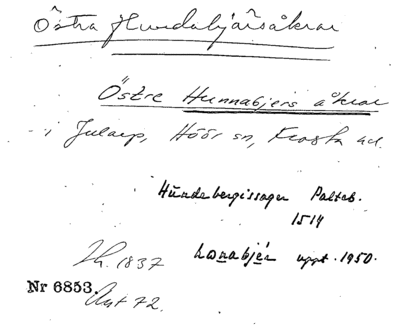 Östra Hundabjärsåkrar
Östre Hunnabjers åkrar
i Jularp, Höör sn, Frosta hd.
Hundebergissager Palteb.
1514
honabjér uppt. 1950.
Lh. 1837
Nr 6853. Ant 72.